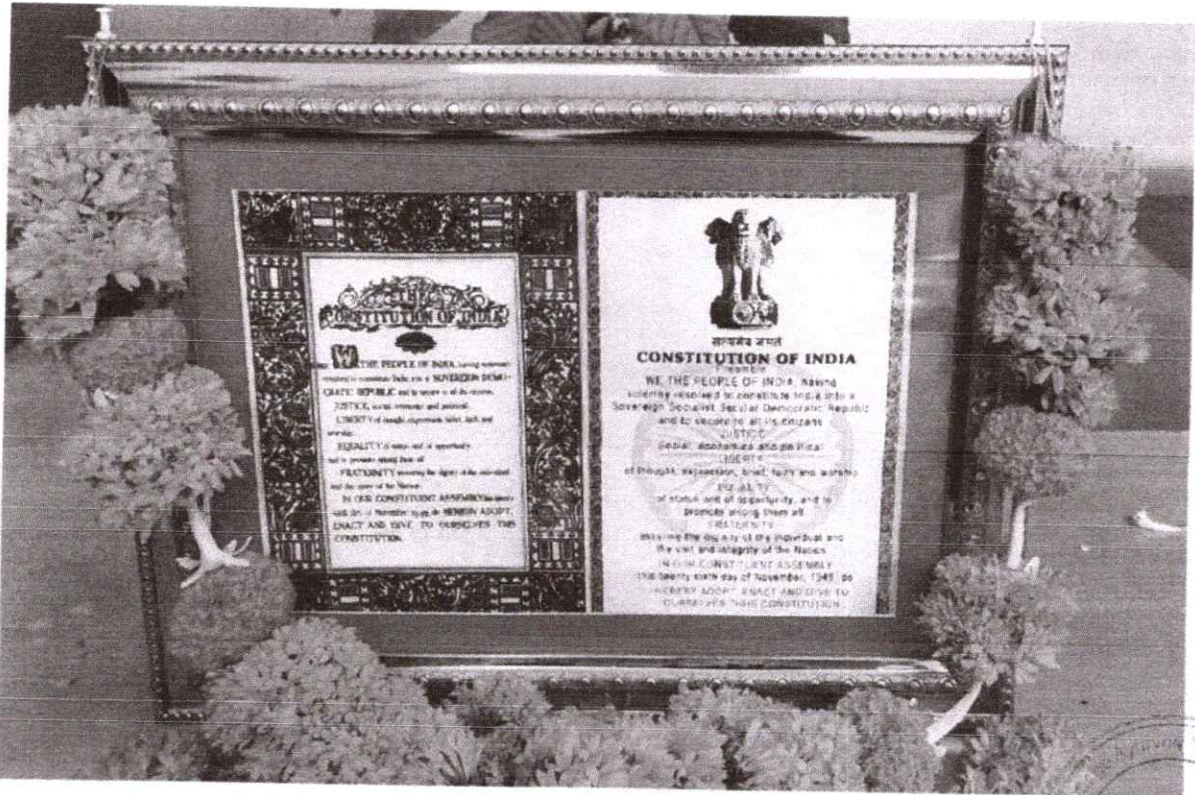 THE
CONSTITUTION OF INDIA
WE, THE PEOPLE OF INDIA, having solemnly
resolved to constitute India into a SOVEREIGN DEMO-
CRATIC REPUBLIC and to secure to all its citizens:
JUSTICE, social, economic and political;
LIBERTY of thought, expression, belief, faith and
worship;
EQUALITY of status and of opportunity;
and to promote among them all
FRATERNITY assuring the dignity of the individual
and the unity of the Nation;
IN OUR CONSTITUENT ASSEMBLY this
day of November, do HEREBY ADOPT,
ENACT AND GIVE TO OURSELVES THIS
CONSTITUTION.
सत्यमेव जयते
CONSTITUTION OF INDIA
Preamble
WE, THE PEOPLE OF INDIA, having
solemnly resolved to constitute India into a
Sovereign Socialist Secular Democratic Republic
and to secure to all its citizens
JUSTICE
Social, economics and political
LIBERTY
of thought, expression, brief, faith and worship
EQUALITY
of status and of opportunity, and to
promote among them all
FRATERNITY
assuring the dignity of the individual and
the unit and integrity of the Nation
IN OUR CONSTITUENT ASSEMBLY
this twenty sixth day of November, 1949, do
HEREBY ADOPT, ENACT AND GIVE TO
OURSELVES THIS CONSTITUTION